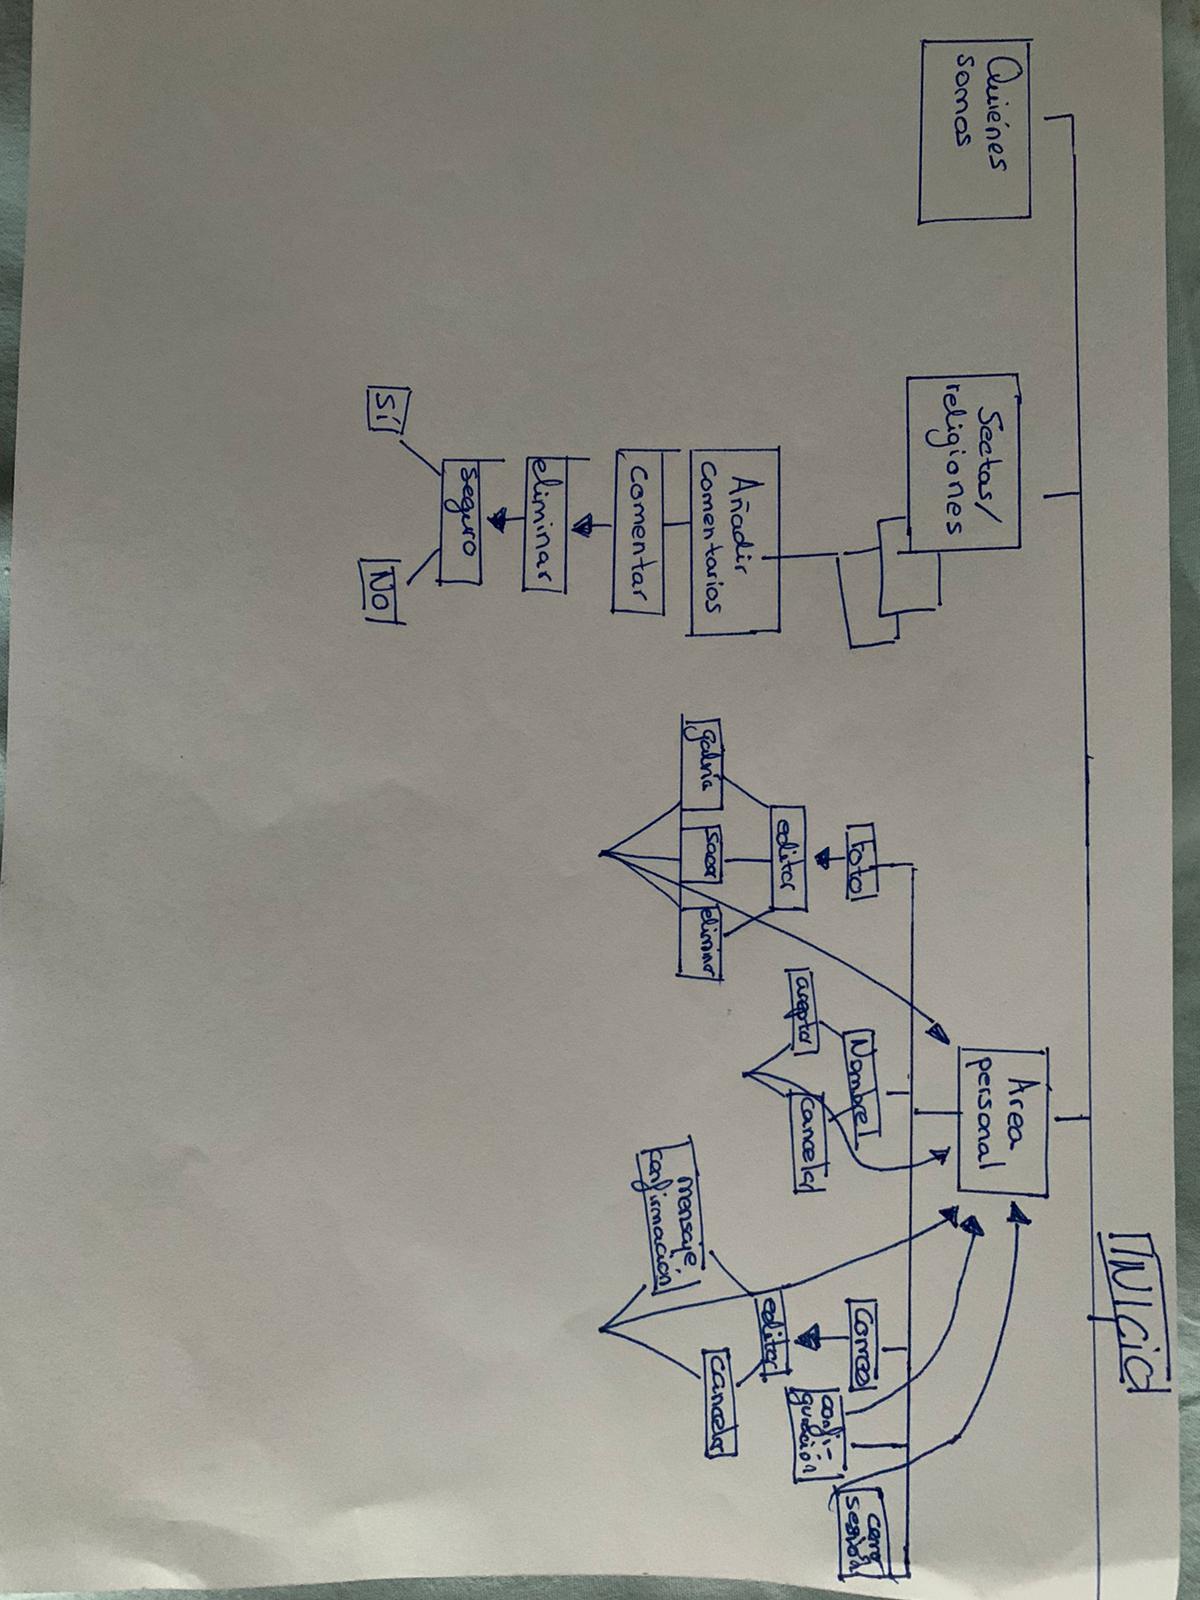 INICIO
Quiénes
somos
Sectas/
religiones
Área
personal
Añadir
comentarios
comentar
eliminar
seguro
Sí
No
foto
editar
galería
sacar
eliminar
Nombre
aceptar
cancelar
Correo
editar
mensaje
confirmación
cancelar
confi-
guración
cerrar
sesión